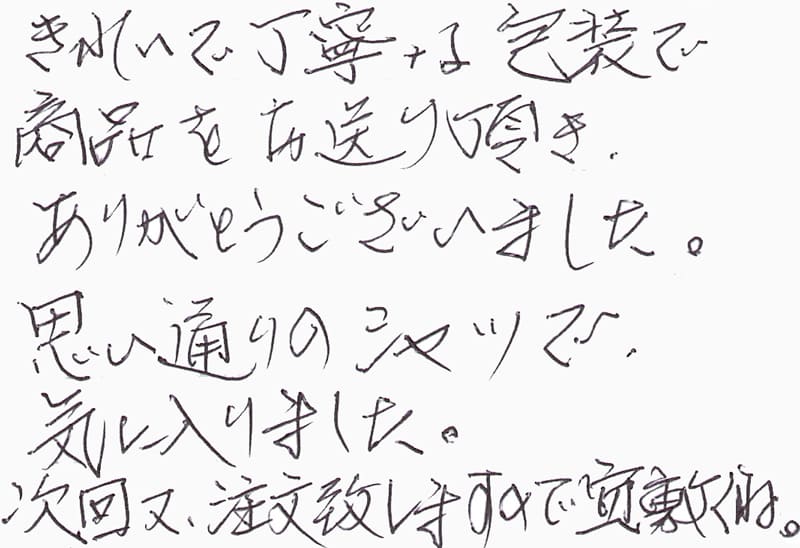 きれいで丁寧な包装で
商品をお送り頂き、
ありがとうございました。
思い通りのシャツで、
気に入りました。
次回又、注文致しますので宜敷くね。